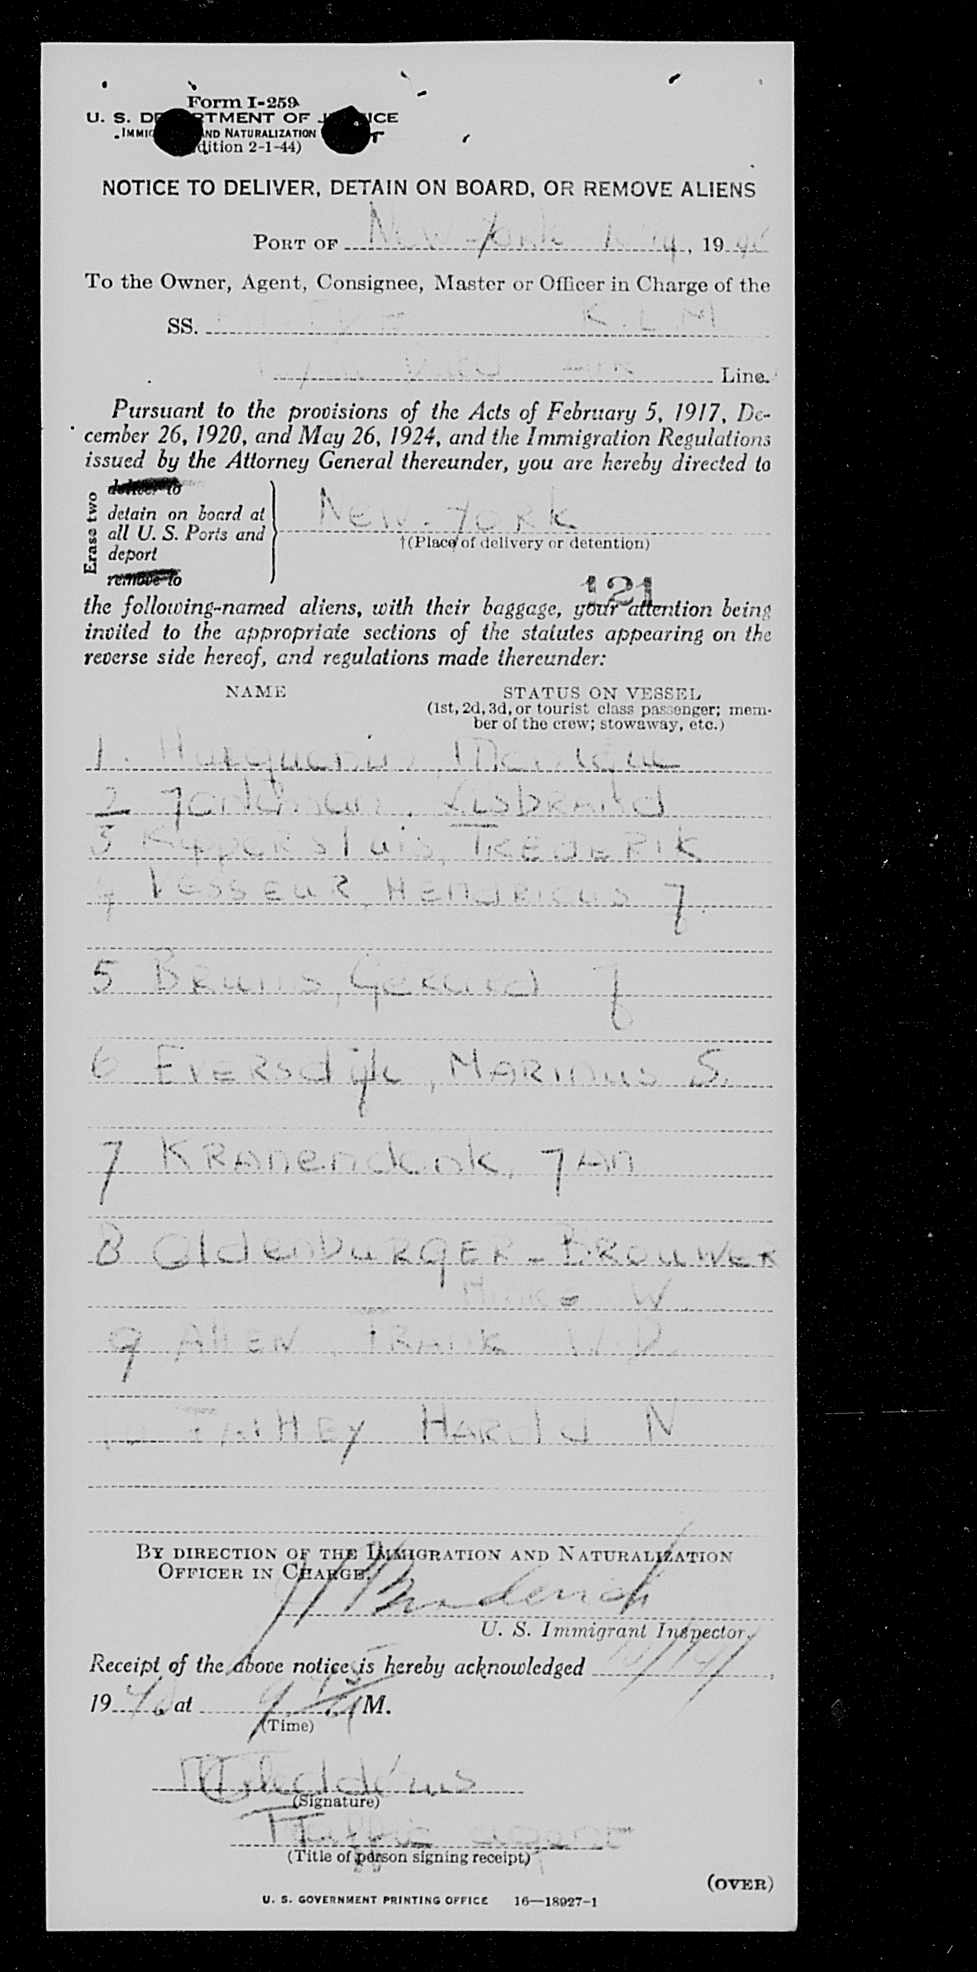 Form I-259
U. S. DEPARTMENT OF JUSTICE
IMMIGRATION AND NATURALIZATION
(Edition 2-1-44)
NOTICE TO DELIVER, DETAIN ON BOARD, OR REMOVE ALIENS
PORT OF New-York, 1946
To the Owner, Agent, Consignee, Master or Officer in Charge of the
SS. K.L.M
Royal Dutch Air Line.
Pursuant to the provisions of the Acts of February 5, 1917, De-
cember 26, 1920, and May 26, 1924, and the Immigration Regulations
issued by the Attorney General thereunder, you are hereby directed to
Erase two
deliver to
detain on board at
all U. S. Ports and
deport
remove to
New-York
†(Place of delivery or detention)
121
the following-named aliens, with their baggage, your attention being
invited to the appropriate sections of the statutes appearing on the
reverse side hereof, and regulations made thereunder:
NAME STATUS ON VESSEL
(1st, 2d, 3d, or tourist class passenger; mem-
ber of the crew; stowaway, etc.)
1.
2 IJsbrand
3 Kuppersluis, Frederik
4 Lesseur, Hendricus J.
5 Bruins, Gerard J
6 Eversdijk, Marinus S.
7 Kranendonk, Jan
8 Oldenburger-Brouwer
W.
9 Allen, Frank W.D.
10 Fathey Harold N
BY DIRECTION OF THE IMMIGRATION AND NATURALIZATION
OFFICER IN CHARGE.
Broderick
U. S. Immigrant Inspector.
Receipt of the above notice is hereby acknowledged ,
1946, at 9 45 AM.
(Time)
(Signature)
Traffic agent
(Title of person signing receipt)
(OVER)
U. S. GOVERNMENT PRINTING OFFICE 16—18927-1